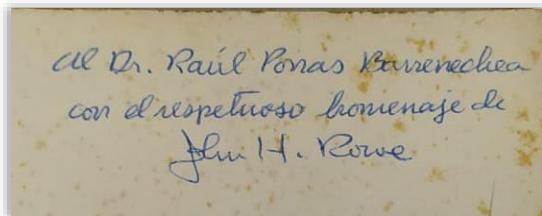 al Dr. Raúl Porras Barrenechea
con el respetuoso homenaje de
John H. Rowe